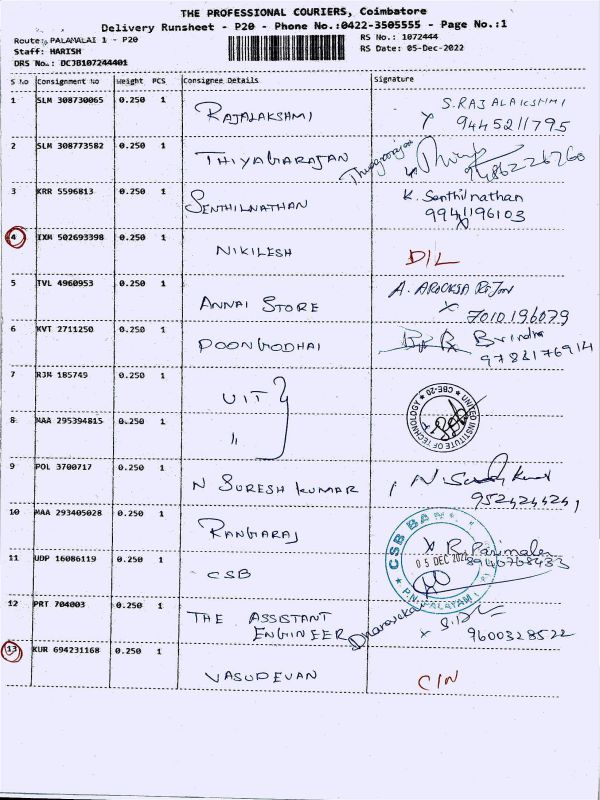 THE PROFESSIONAL COURIERS, Coimbatore
Delivery Runsheet - P20 - Phone No.:0422-3505555 - Page No.:1
Route: PALAMALAI 1 - P20
Staff: HARISH
DRS No.: DCJB107244401
RS No.: 1072444
RS Date: 05-Dec-2022
S No Consignment No Weight PCS Consignee Details Signature
1 SLM 308730065 0.250 1 RAJALAKSHMI S.RAJALAKSHMI
9445211795
2 SLM 308773582 0.250 1 THIYAGARAJAN Thiyagarajan
9486226260
3 KRR 5596813 0.250 1 SENTHILNATHAN K. Senthilnathan
9941196103
4 IXM 502693398 0.250 1 NIKILESH DIL
5 TVL 4960953 0.250 1 ANNAI STORE A.
7010196079
6 KVT 2711250 0.250 1 POONGODHAI Brindha
9788176914
7 RJM 185749 0.250 1 UIT
UNITED INSTITUTE OF TECHNOLOGY * CBE-20 *
8 MAA 295394815 0.250 1 "
9 POL 3700717 0.250 1 N SURESH KUMAR N. Suresh Kumar
10 MAA 293405028 0.250 1 RANGARAJ R. Parimala
8940768433
11 UDP 16086119 0.250 1 CSB
CSB BANK
05 DEC 2022
P.N. PALAYAM
12 PRT 704003 0.250 1 THE ASSISTANT
ENGINEER
9600328522
13 KUR 694231168 0.250 1 VASUDEVAN CIN